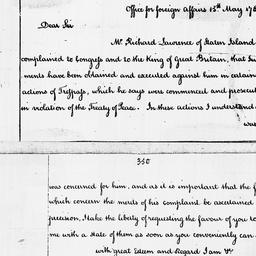 Office for foreign Affairs 13th May 178
Dear Sir
Mr. Richard Lawrence of Staten Island
complained to Congress and to the King of Great Britain, that
ments have been obtained and executed against him in certain
actions of Trespass, which he says were commenced and prosecut
in violation of the Treaty of Peace. In these actions I understand
was
350
was concerned for him, and as it is important that the f
which concern the merits of his complaint be ascertained
precision, I take the liberty of requesting the favour of you to
me with a State of them as soon as you conveniently can.
with great Esteem and Regard I am &c